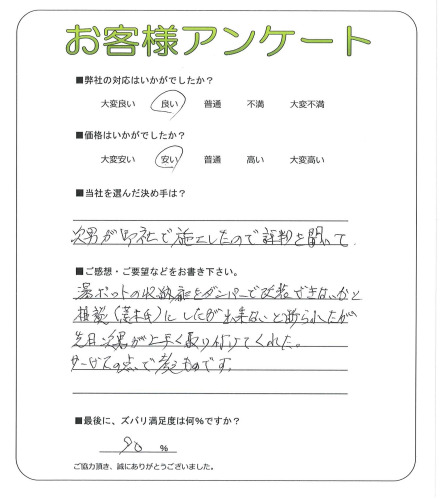 お客様アンケート
■弊社の対応はいかがでしたか？
大変良い 良い 普通 不満 大変不満
■価格はいかがでしたか？
大変安い 安い 普通 高い 大変高い
■当社を選んだ決め手は？
次男が御社で施工したので評判を聞いて.
■ご感想・ご要望などをお書き下さい。
湯ポットの収納庫をダンパーで改装できないかと
相談()にしたが出来ないと断られたが
先日次男が上手く取り付けてくれた。
サービスの点で考えものです。
■最後に、ズバリ満足度は何%ですか？
90 %
ご協力頂き、誠にありがとうございました。